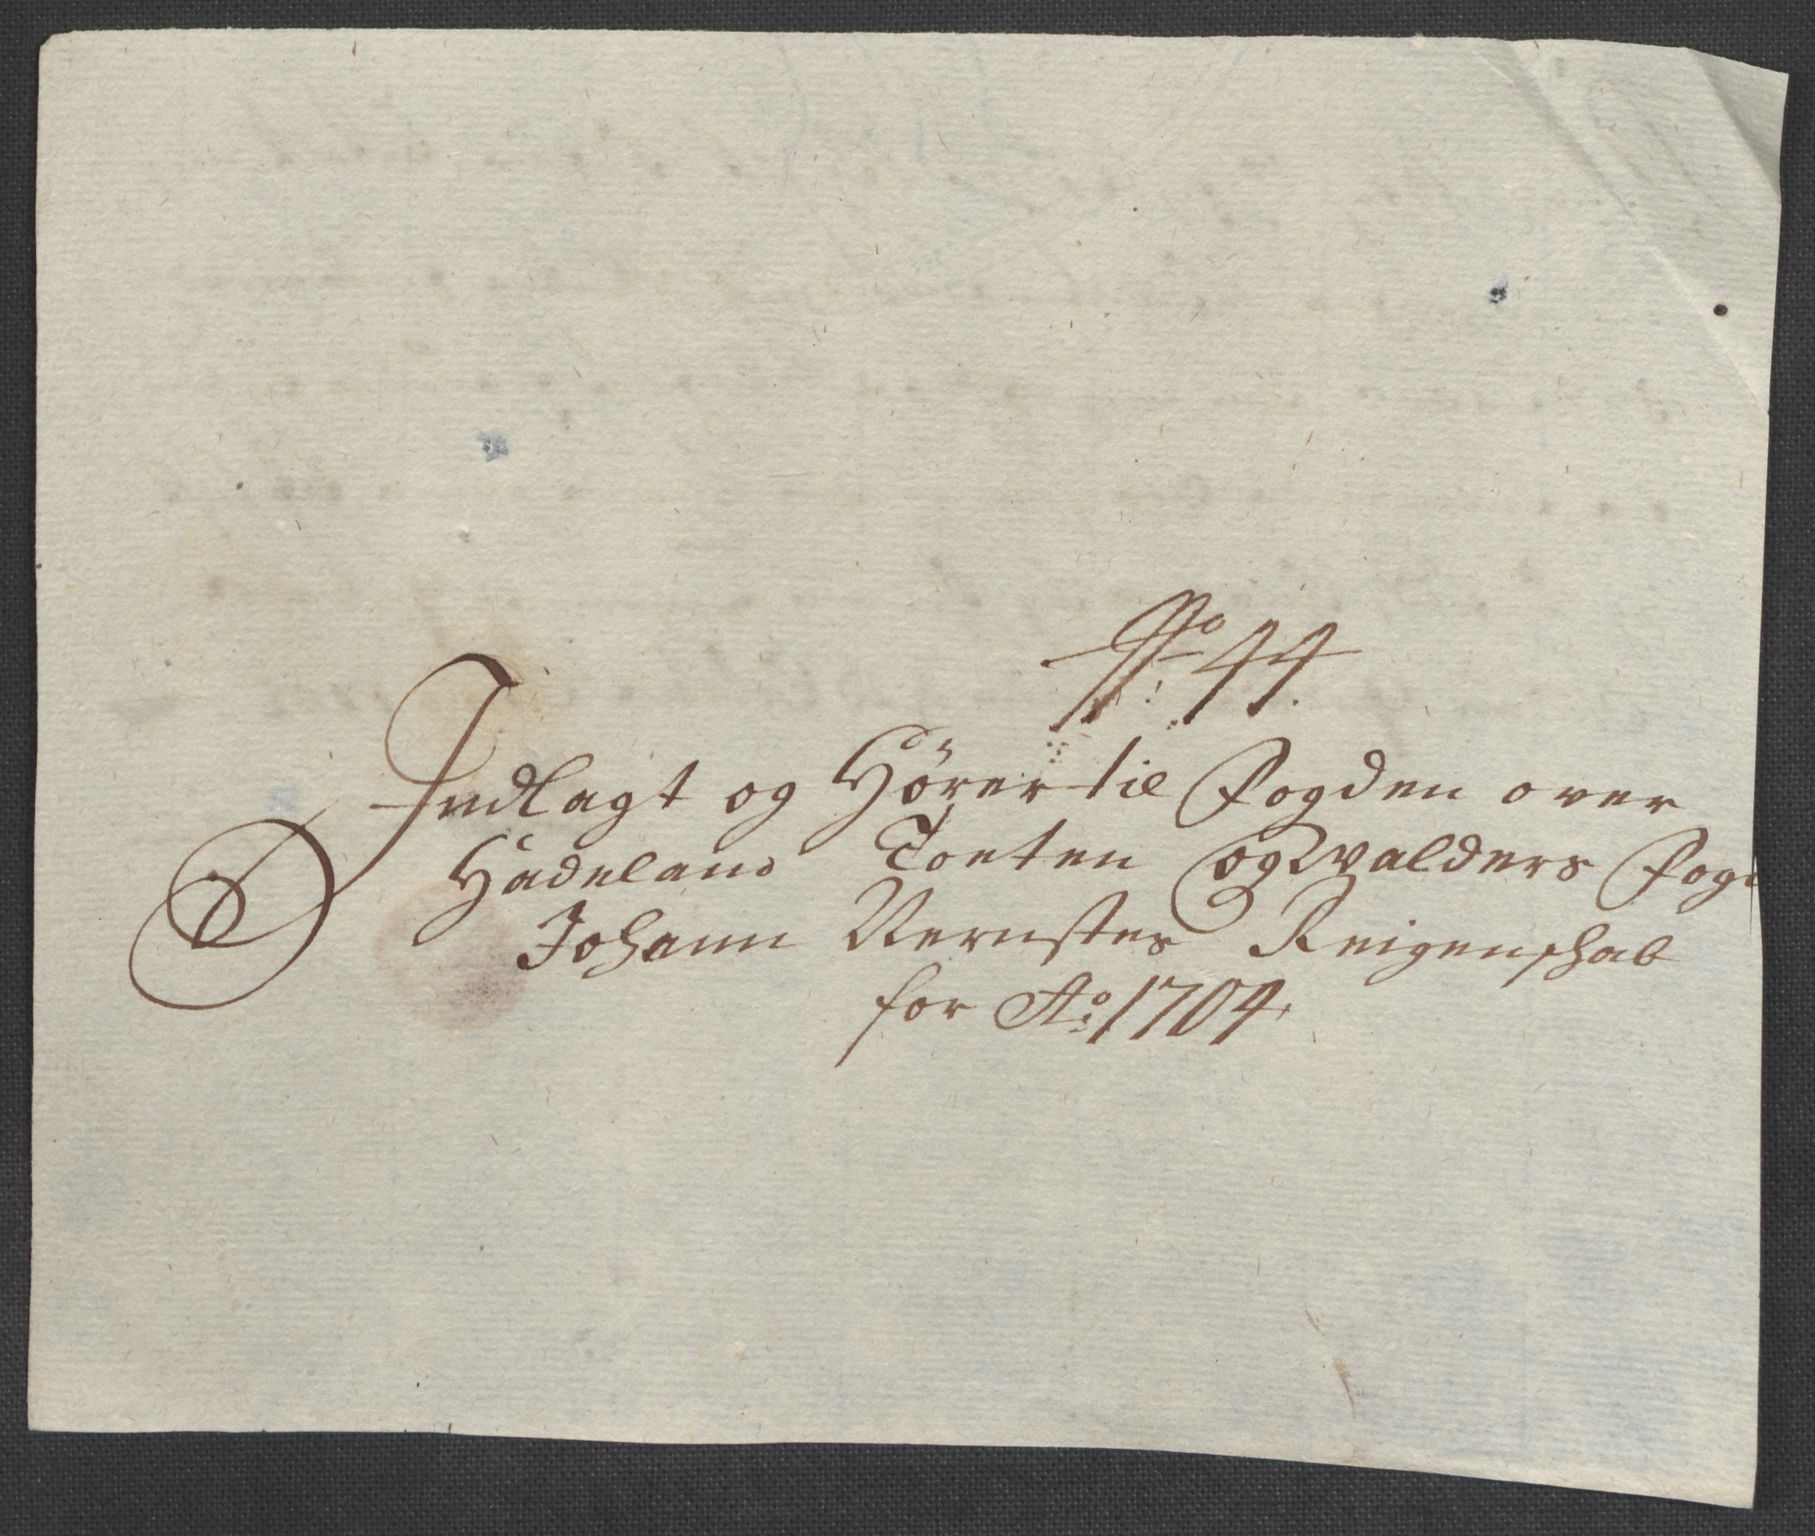 No: 44.
Indlagt og Hörer til Fogden over
Hadeland Toeten og Valders Fog
Johann Vernstes Reigenschab
for Ao: 1704.